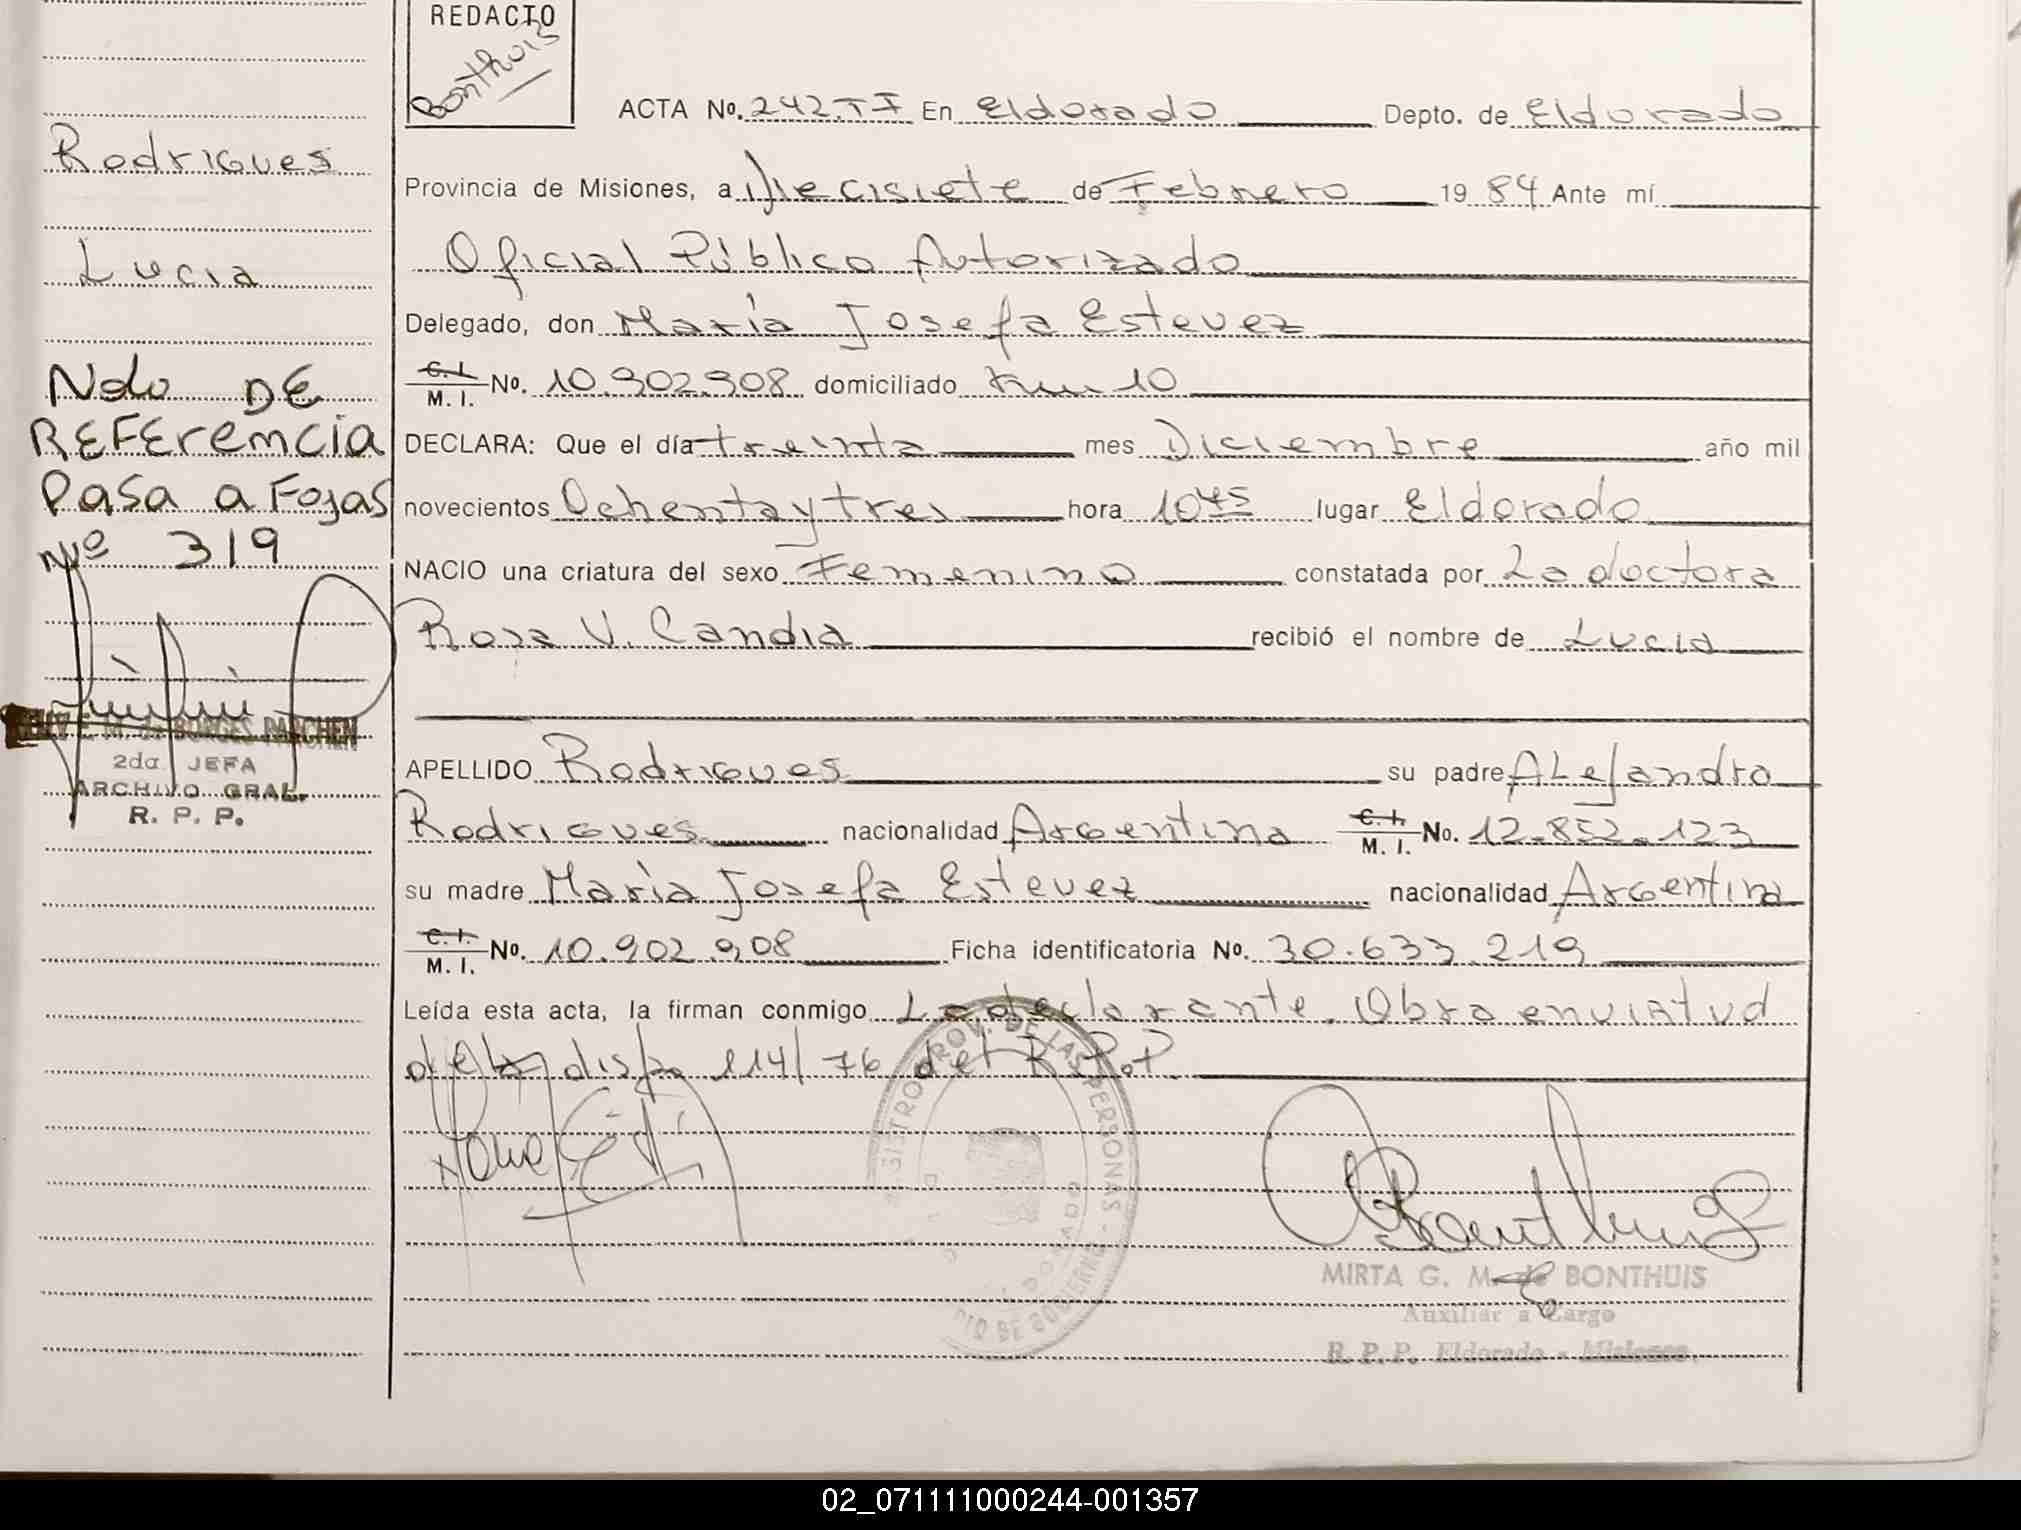 REDACTO
Bonthuis
ACTA No. 242. TI En Eldorado Depto. de Eldorado
Provincia de Misiones, a Diecisiete de Febrero 19 84 Ante mí
Oficial Público Autorizado
Delegado, don María Josefa Estevez
C. I. M. I. No. 10.902.908 domiciliado Km 10
DECLARA: Que el día treinta mes Diciembre año mil
novecientos Ochenta y tres hora 10 45 lugar Eldorado
NACIO una criatura del sexo Femenino constatada por La doctora
Rosa V. Candia recibió el nombre de Lucia
APELLIDO Rodrigues su padre ALejandro
Rodrigues nacionalidad Argentina C. I. M. I. No. 12.852.123
su madre María Josefa Estevez nacionalidad Argentina
C. I. M. I. No. 10.902.908 Ficha identificatoria No. 30.633.219
Leída esta acta, la firman conmigo La declarante. Obra en virtud
de la disp. 114/76 del R.P.P.
Rodrigues
Lucia
DE
REFErencia
Pasa a Fojas
Nº 319
E. M. de BORGES PARCHEN
2da. JEFA
ARCHIVO GRAL.
R. P. P.
REGISTRO PROV. DE LAS PERSONAS
MIRTA G. M. de BONTHUIS
Auxiliar a Cargo
R. P. P. Eldorado - Misiones
02_071111000244-001357